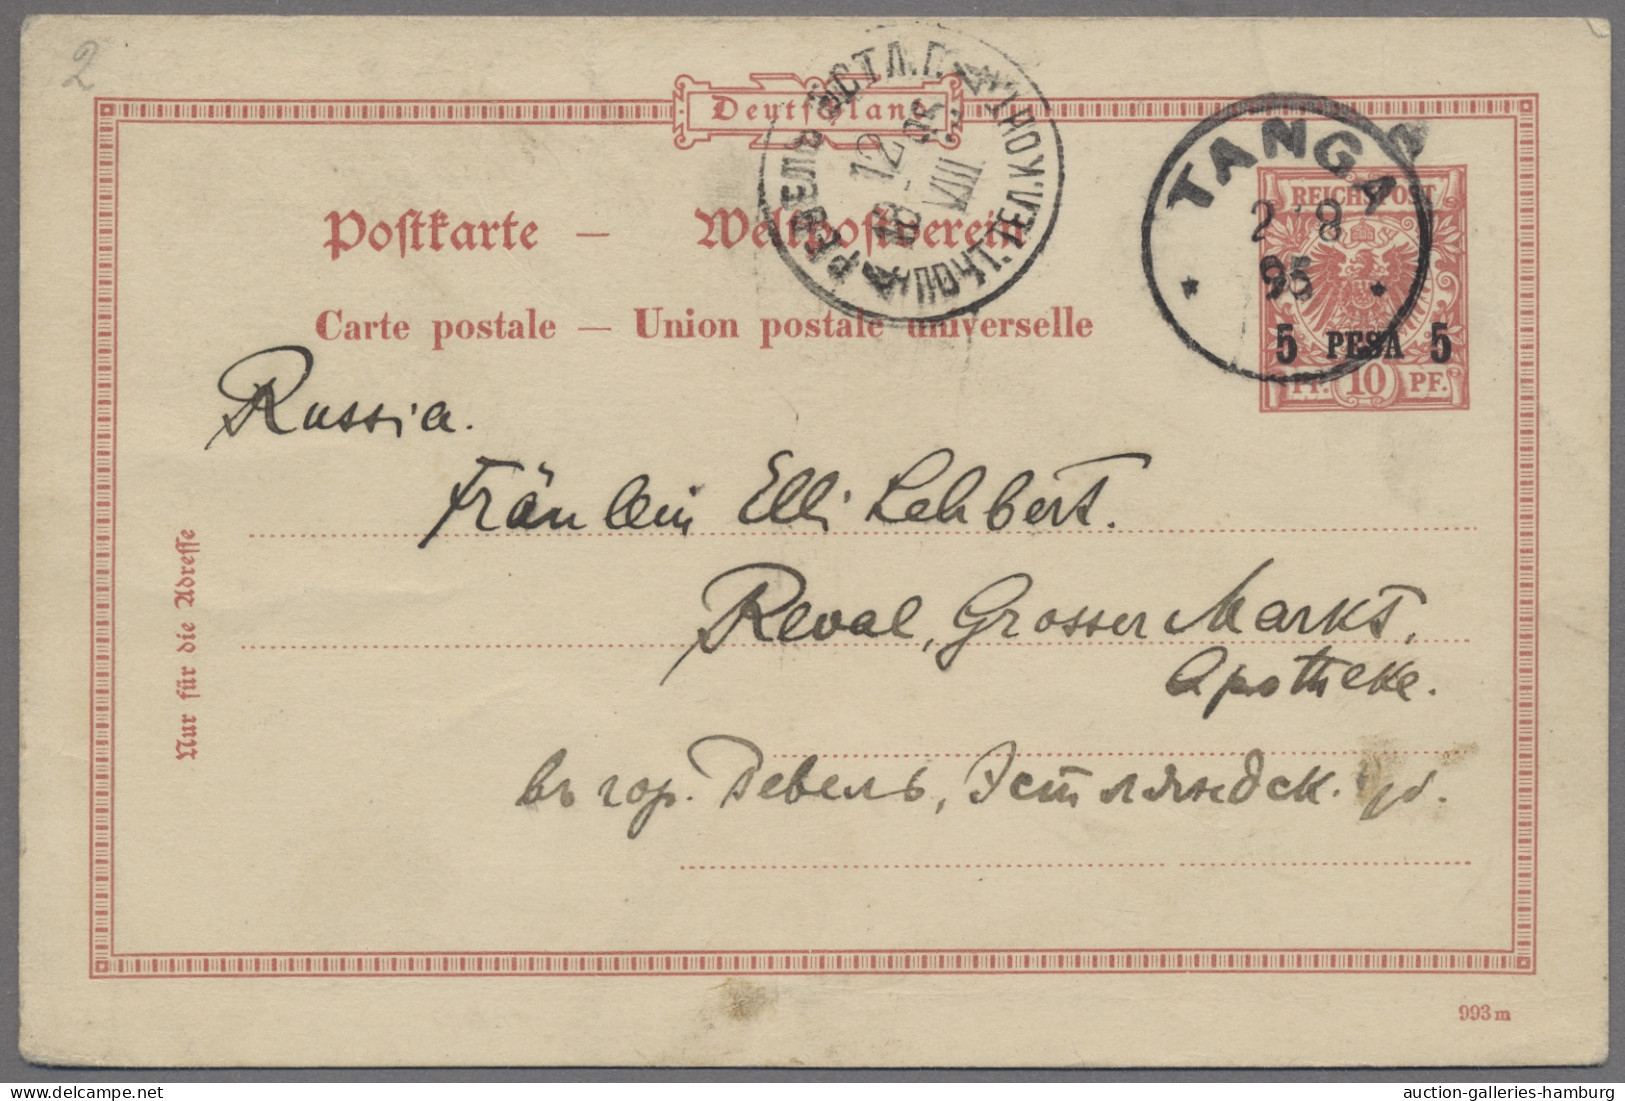 2
Deutschland
РЕВЕЛЬ ЭСТЛ.Г.
ПОЧТ. ТЕЛ. КОНТ.
12
VIII
TANGA
2 8
95
REICHSPOST
5 PESA 5
PF. 10 PF.
Postkarte — Weltpostverein
Carte postale — Union postale universelle
Russia.
Fräulein Elli Lehbert.
Reval, Grosser Markt,
Apotheke.
въ гор. Ревель, Эстляндск. гб.
Nur für die Adresse
993 m
auction-galleries-hamburg